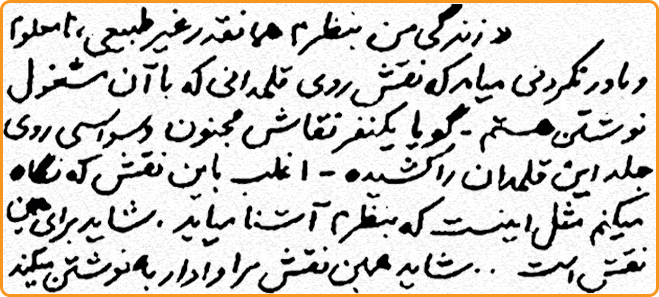 «زندگی من بنظرم همانقدر غیر طبیعی، نامعلوم
و باور نکردنی میامد که نقش روی قلمدانی که با آن مشغول
نوشتن هستم - گویا یکنفر نقاش مجنون وسواسی روی
جلد این قلمدان را کشیده - اغلب باین نقش که نگاه
میکنم مثل اینست که بنظرم آشنا میاید . شاید برای همین
نقش است .. شاید همین نقش مرا وادار به نوشتن میکند